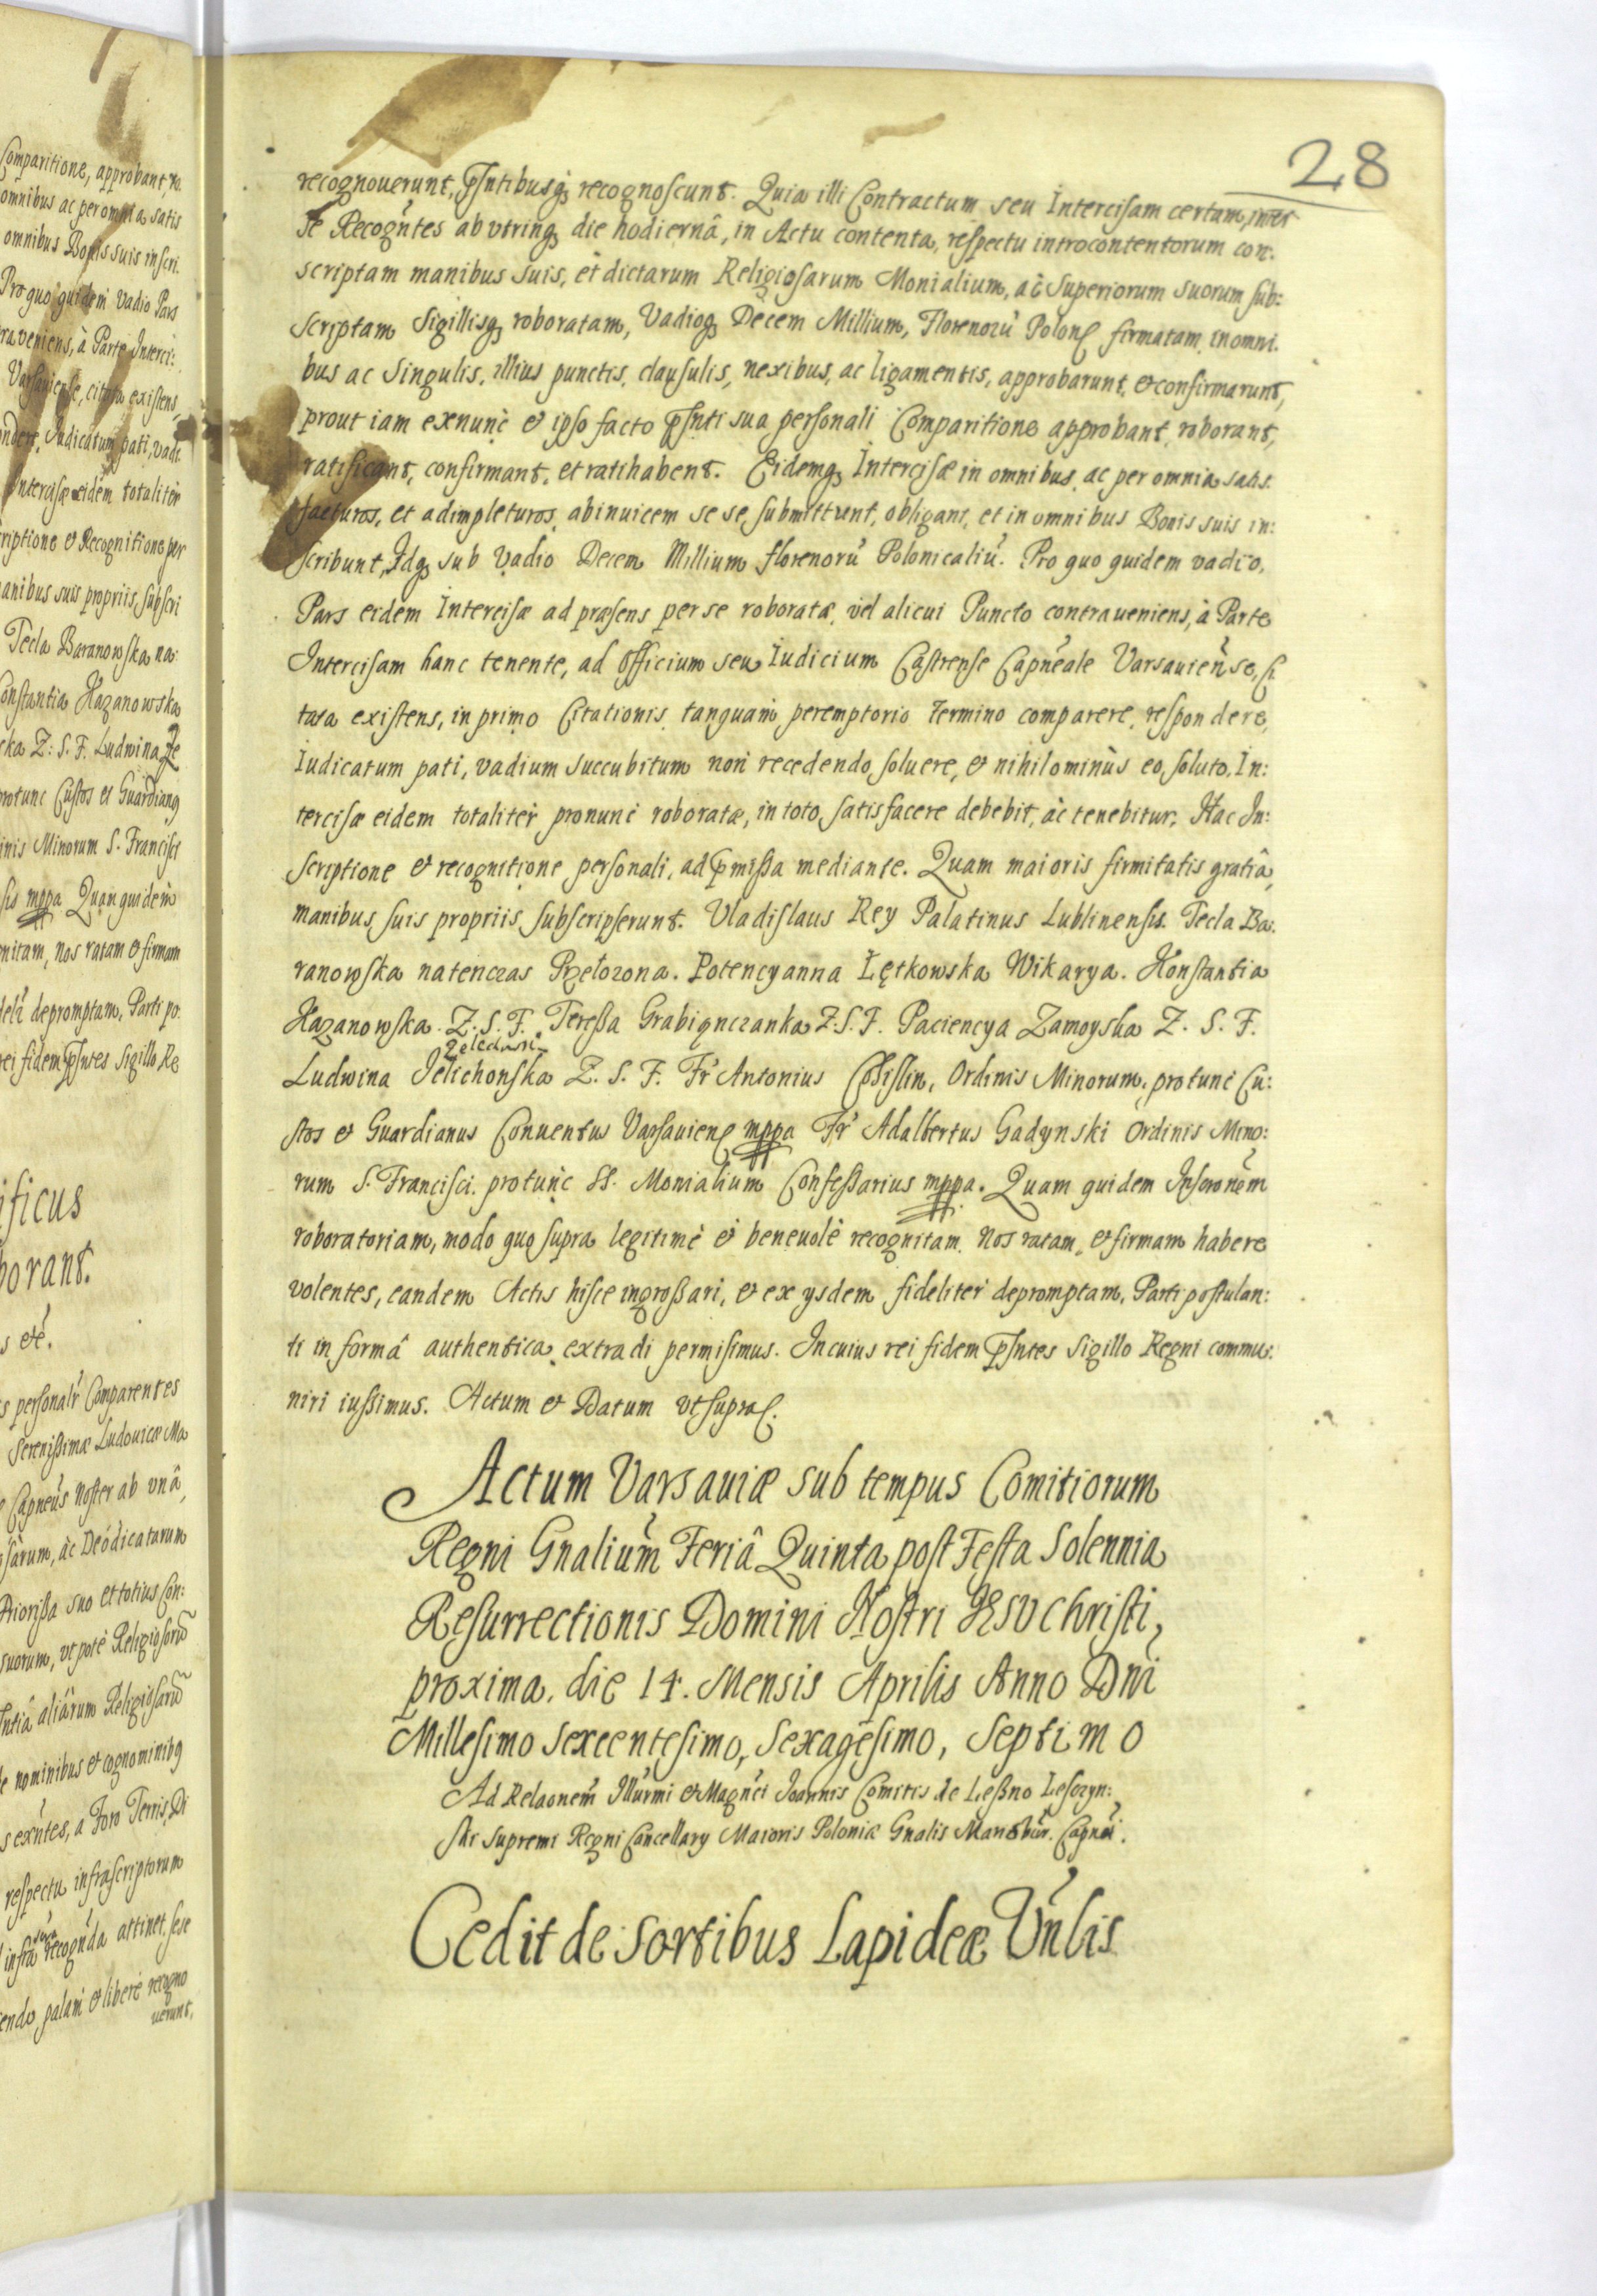 28
recognouerunt, pñtibusq; recognoscunt. Quia illi Contractum seu Intercisam certam, inter
se Recogñtes ab vtrinq; die hodiernâ, in Actu contenta, respectu introcontentorum con:
scriptam manibus suis, et dictarum Religiosarum Monialium, ac Superiorum suorum sub:
scriptam Sigillisq; roboratam, Vadioq; Decem Millium, Florenorũ Polon firmatam, in omni.
bus ac Singulis, illius punctis, clausulis, nexibus, ac ligamentis, approbarunt, & confirmarunt,
prout iam exnunc & ipso facto pñti sua personali Comparitione approbant, roborant,
ratificant, confirmant, et ratihabent. Eidemq; Intercisæ in omnibus, ac per omnia satis.
facturos, et adimpleturos, abinuicem sese submittunt, obligant, et in omnibus Bonis suis in:
scribunt, Idq; sub Vadio Decem Millium florenorũ Polonicaliũ. Pro quo quidem vadio,
Pars eidem Intercisæ ad præsens per se roboratæ, vel alicui Puncto contraueniens, à Parte
Intercisam hanc tenente, ad Officium seu Iudicium Castrense Capneale Varsauiense, Ci
tata existens, in primo Citationis, tanquam peremptorio Termino comparere, respondere,
Iudicatum pati, vadium succubitum non recedendo soluere, & nihilominùs eo, soluto, In:
tercisæ eidem totalitèr pronunc roboratæ, in toto, satisfacere debebit, ac tenebitur. Hac In:
scriptione & recognitione personali, ad pmissa mediante. Quam maioris firmitatis gratiâ,
manibus suis propriis subscripserunt. Vladislaus Rey Palatinus Lublinensis. Tecla Ba:
ranowska natenczas Przełozona. Potencyanna Łętkowska Wikarya. Konstantia
Kazanowska Z. S. F. Teressa Grabiąnczanka Z. S. F. Paciencya Zamoyska Z. S. F.
Ludwina Jelichonska Z. S. F. Fr Antonius Ordinis Minorum, protunc Cu:
stos & Guardianus Conuentus Varsauien mppa Fr Adalbertus Gadynski Ordinis Mino:
rum S. Francisci, protunc SS. Monialium Confessarius mppa. Quam quidem Inscronem
roboratoriam, modo quo supra legitimè & beneuolè recognitam, Nos ratam, & firmam habere
volentes, eandem Actis hisce ingrossari, & ex ysdem fidelitèr depromptam, Parti postulan:
ti in formâ authentica, extradi permisimus. In cuius rei fidem pñtes Sigillo Regni commu:
niri iussimus. Actum & Datum vt supra.
Actum Varsauiæ sub tempus Comitiorum
Regni Gnalium Feriâ Quinta post Festa Solennia
Resurrectionis Domini Nostri IESV Christi,
proxima, die 14. Mensis Aprilis Anno Dni
Millesimo Sexcentesimo, Sexagesimo, Septimo
Ad Relaonem Illurmi & Magnci Joannis Comitis de Leßno Lesczyn:
ski Supremi Regni Cancellary Maioris Poloniæ Gnalis Capnei.
Cedit de Sortibus Lapideæ Vnlis
Comparitione, approbant, ro
omnibus ac per omnia satis
omnibus Bonis suis inscri.
Pro quo quidem Vadio Pars
raueniens, à Parte Interci:
Varsauiense, citata existens,
ondere, Iudicatum pati, vadi
Intercisæ eidem totalitèr
riptione & Recognitione per
anibus suis propriis, subscri
Tecla Baranowska na
Constantia Kazanowska
ska Z: S. F. Ludwina Ze
protunc Custos et Guardiang
inis Minorum S. Francisci
sis mppa Quan quidem
nitam, nos ratam & firmam
deli depromptam, Parti po
rei fidem pñtes Sigillo Re
ificus
borant.
s etc.
s personalr Comparentes
Serenissimæ Ludouicæ Ma
Capneus Noster ab vnâ,
sarum, ac Deodicatarum
Priorissa suo et totius Con:
suorum, vt pote Religiosarũ
ntiâ aliarum Religiosarũ
e nominibus et cognominibq
s exntes, a Foro Terris, Di
respectu infrascriptorum
infra recognda attinet, sese
endo palam & liberè recogno
uerunt,